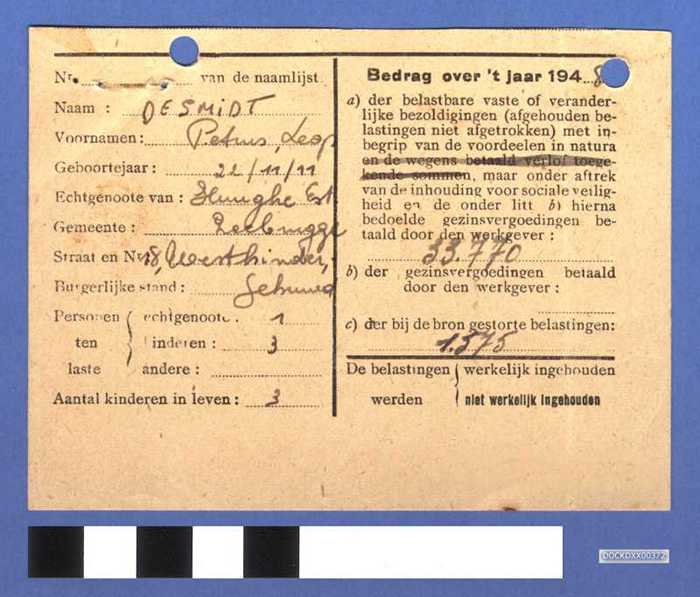 Nr. van de naamlijst
Naam : DESMIDT
Voornamen : Petrus, Leop
Geboortejaar : 22/11/11
Echtgenoote van : Est
Gemeente : Zeebrugge
Straat en Nr 18, Westhinder,
Burgerlijke stand : Gehuwd
Personen ten laste
echtgenoote : 1
kinderen : 3
andere :
Aantal kinderen in leven : 3
Bedrag over 't jaar 194 8
a) der belastbare vaste of verander-
lijke bezoldigingen (afgehouden be-
lastingen niet afgetrokken) met in-
begrip van de voordeelen in natura
en de wegens betaald verlof toege-
kende sommen, maar onder aftrek
van de inhouding voor sociale veilig-
heid en de onder litt b) hierna
bedoelde gezinsvergoedingen be-
taald door den werkgever :
33.770
b) der gezinsvergoedingen betaald
door den werkgever :
c) der bij de bron gestorte belastingen:
1.575
De belastingen werden
werkelijk ingehouden
niet werkelijk ingehouden
DOCKDXX00372